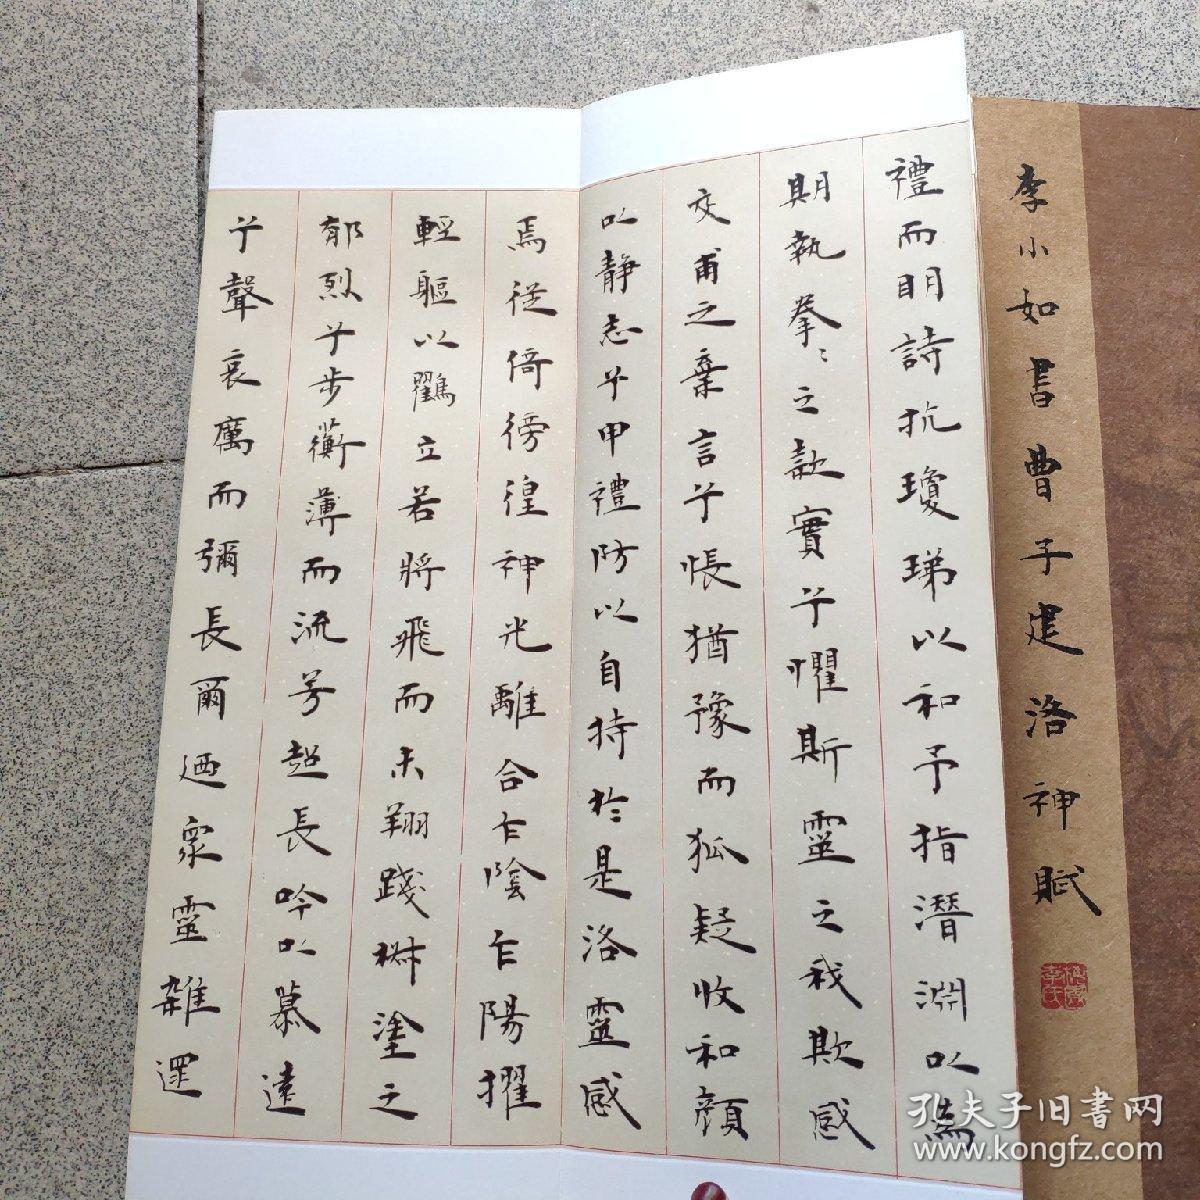 李小如書曹子建洛神賦
禮而明詩抗瓊珶以和予指潛淵以為
期執拳々之款實兮懼斯靈之我欺感
交甫之棄言兮悵猶豫而狐疑收和顏
以靜志兮申禮防以自持於是洛靈感
焉徙倚徬徨神光離合乍陰乍陽擢
輕軀以鶴立若將飛而未翔踐椒塗之
郁烈兮步蘅薄而流芳超長吟以慕遠
兮聲哀厲而彌長爾迺眾靈雜遝
孔夫子旧书网
www.kongfz.com